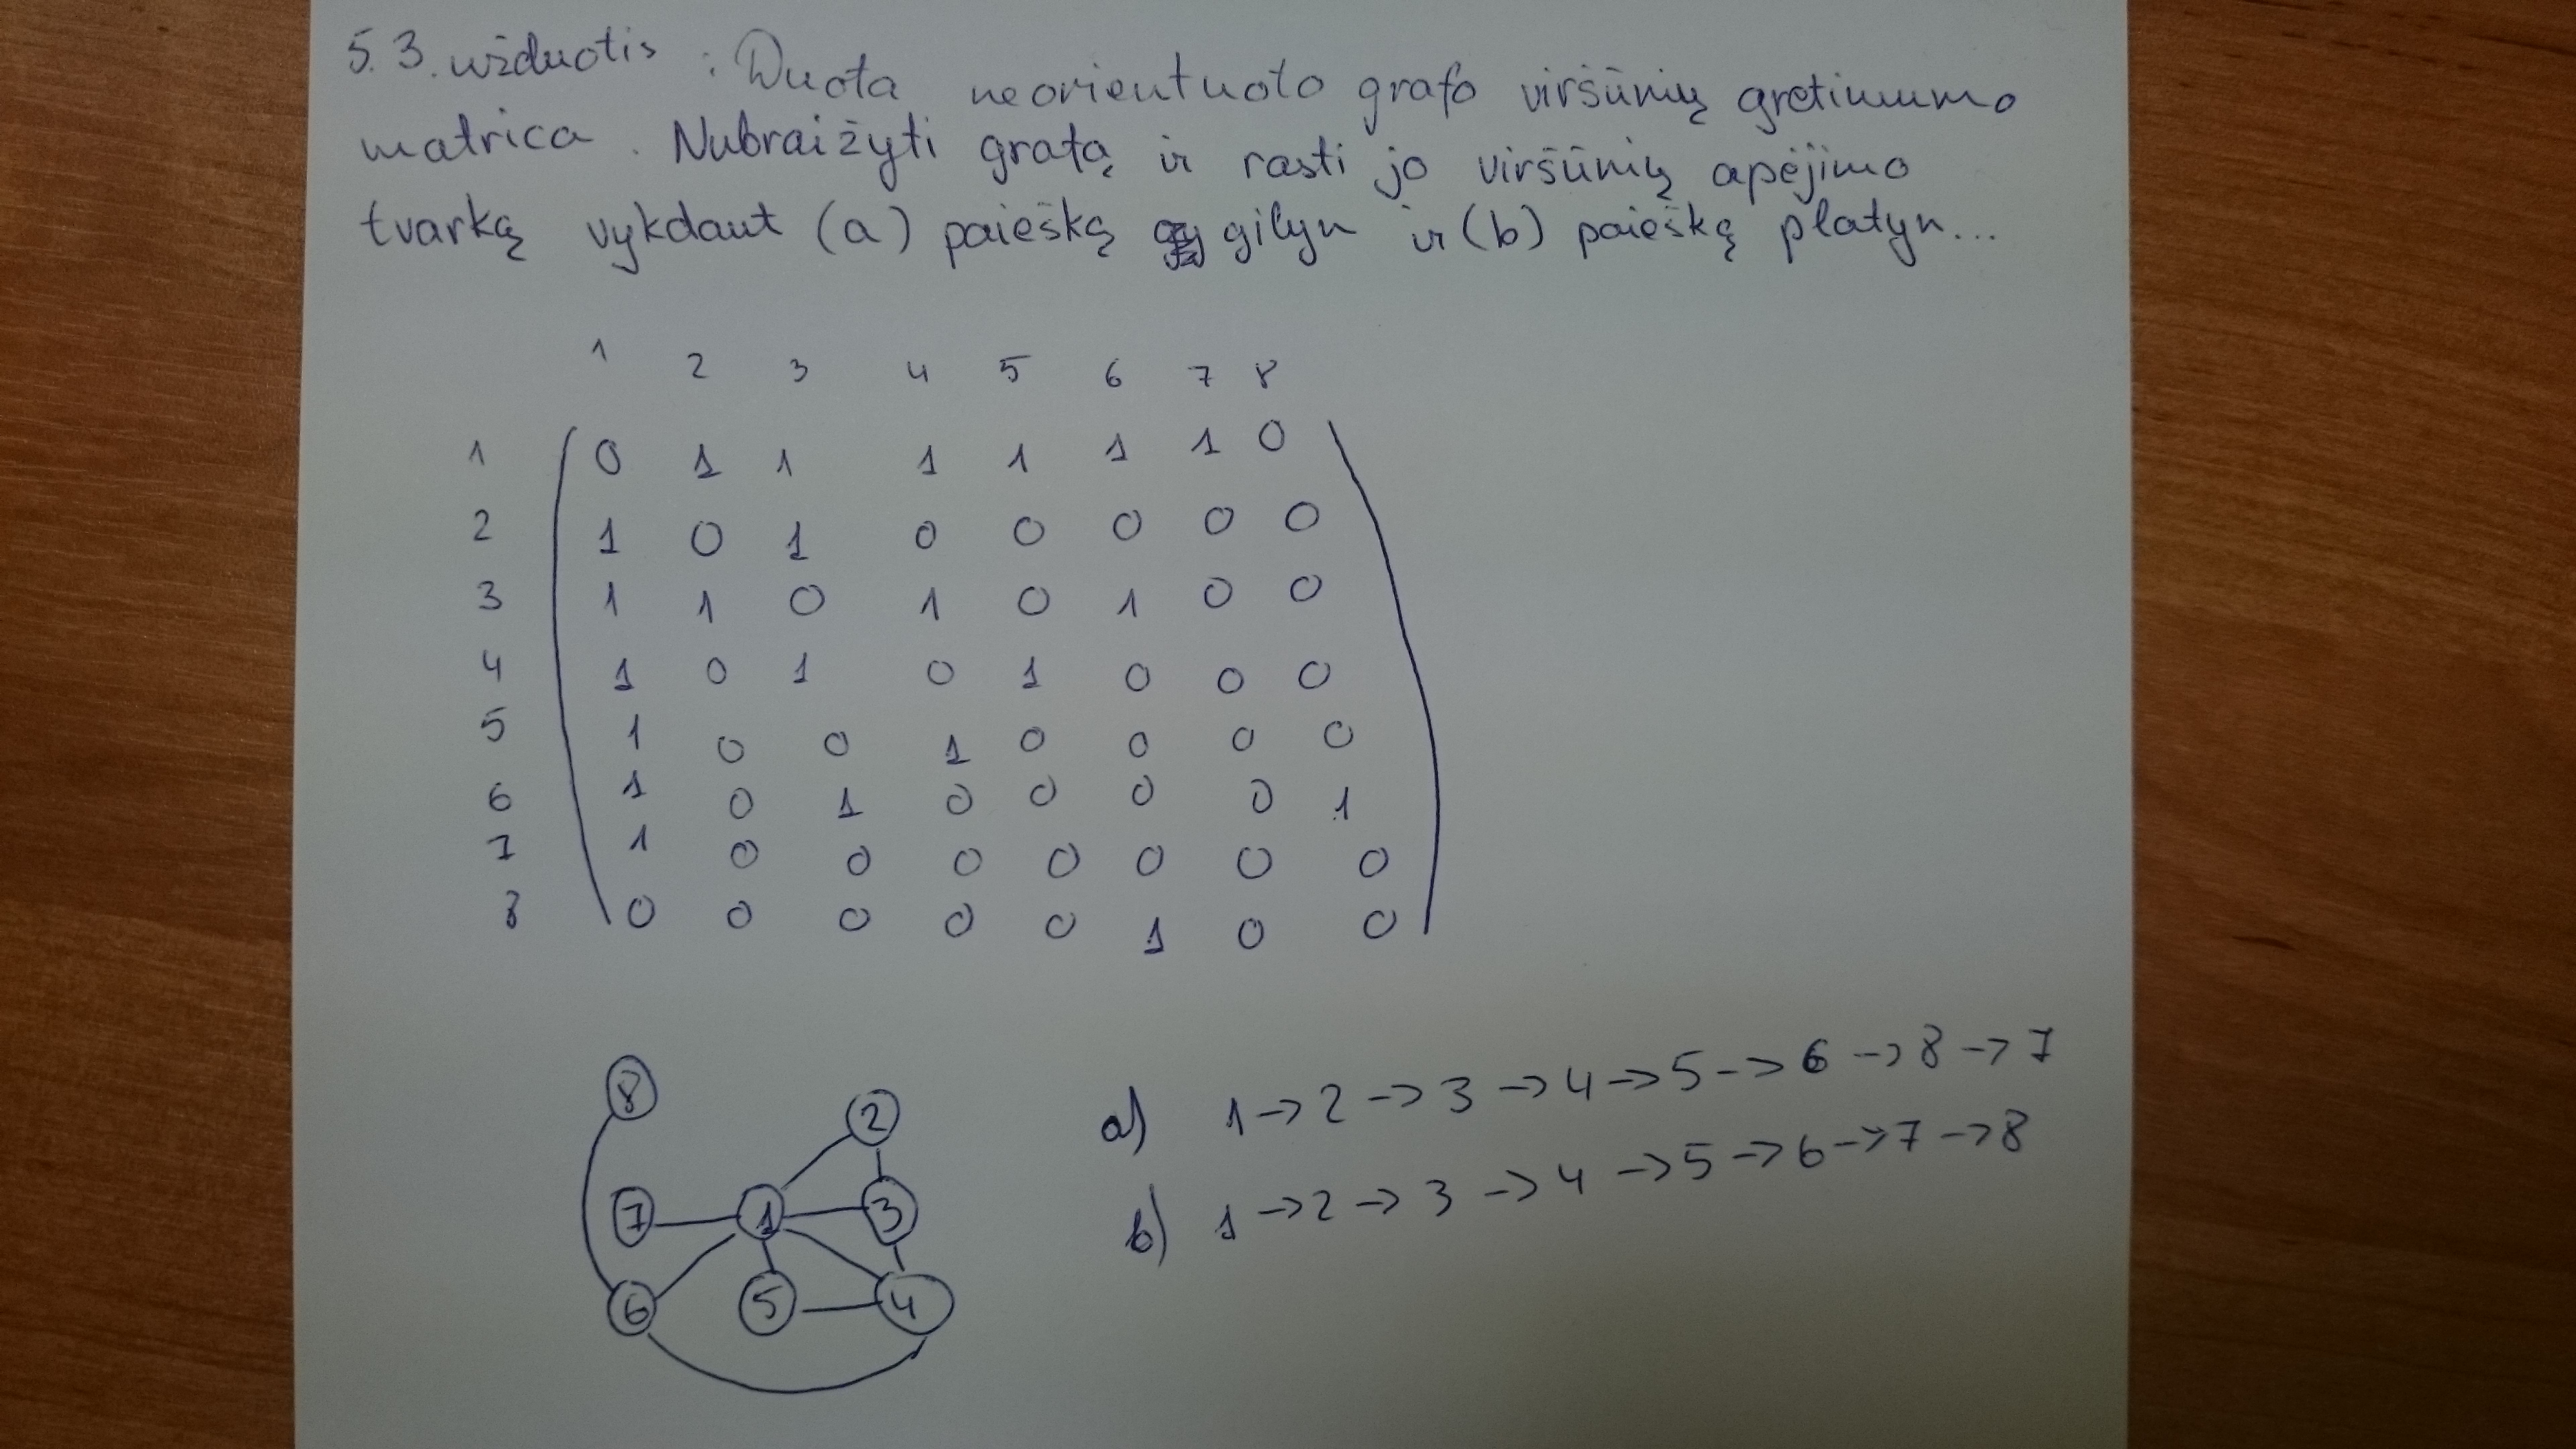 5.3. užduotis : Duota neorientuoto grafo viršūnių gretimumo
matrica. Nubraižyti grafą ir rasti jo viršūnių apėjimo
tvarką vykdant (a) paiešką gilyn ir (b) paiešką platyn...
1 2 3 4 5 6 7 8
1 0 1 1 1 1 1 1 0
2 1 0 1 0 0 0 0 0
3 1 1 0 1 0 1 0 0
4 1 0 1 0 1 0 0 0
5 1 0 0 1 0 0 0 0
6 1 0 1 0 0 0 0 1
7 1 0 0 0 0 0 0 0
8 0 0 0 0 0 1 0 0
8
2
7 1 3
6 5 4
a) 1 -> 2 -> 3 -> 4 -> 5 -> 6 -> 8 -> 7
b) 1 -> 2 -> 3 -> 4 -> 5 -> 6 -> 7 -> 8